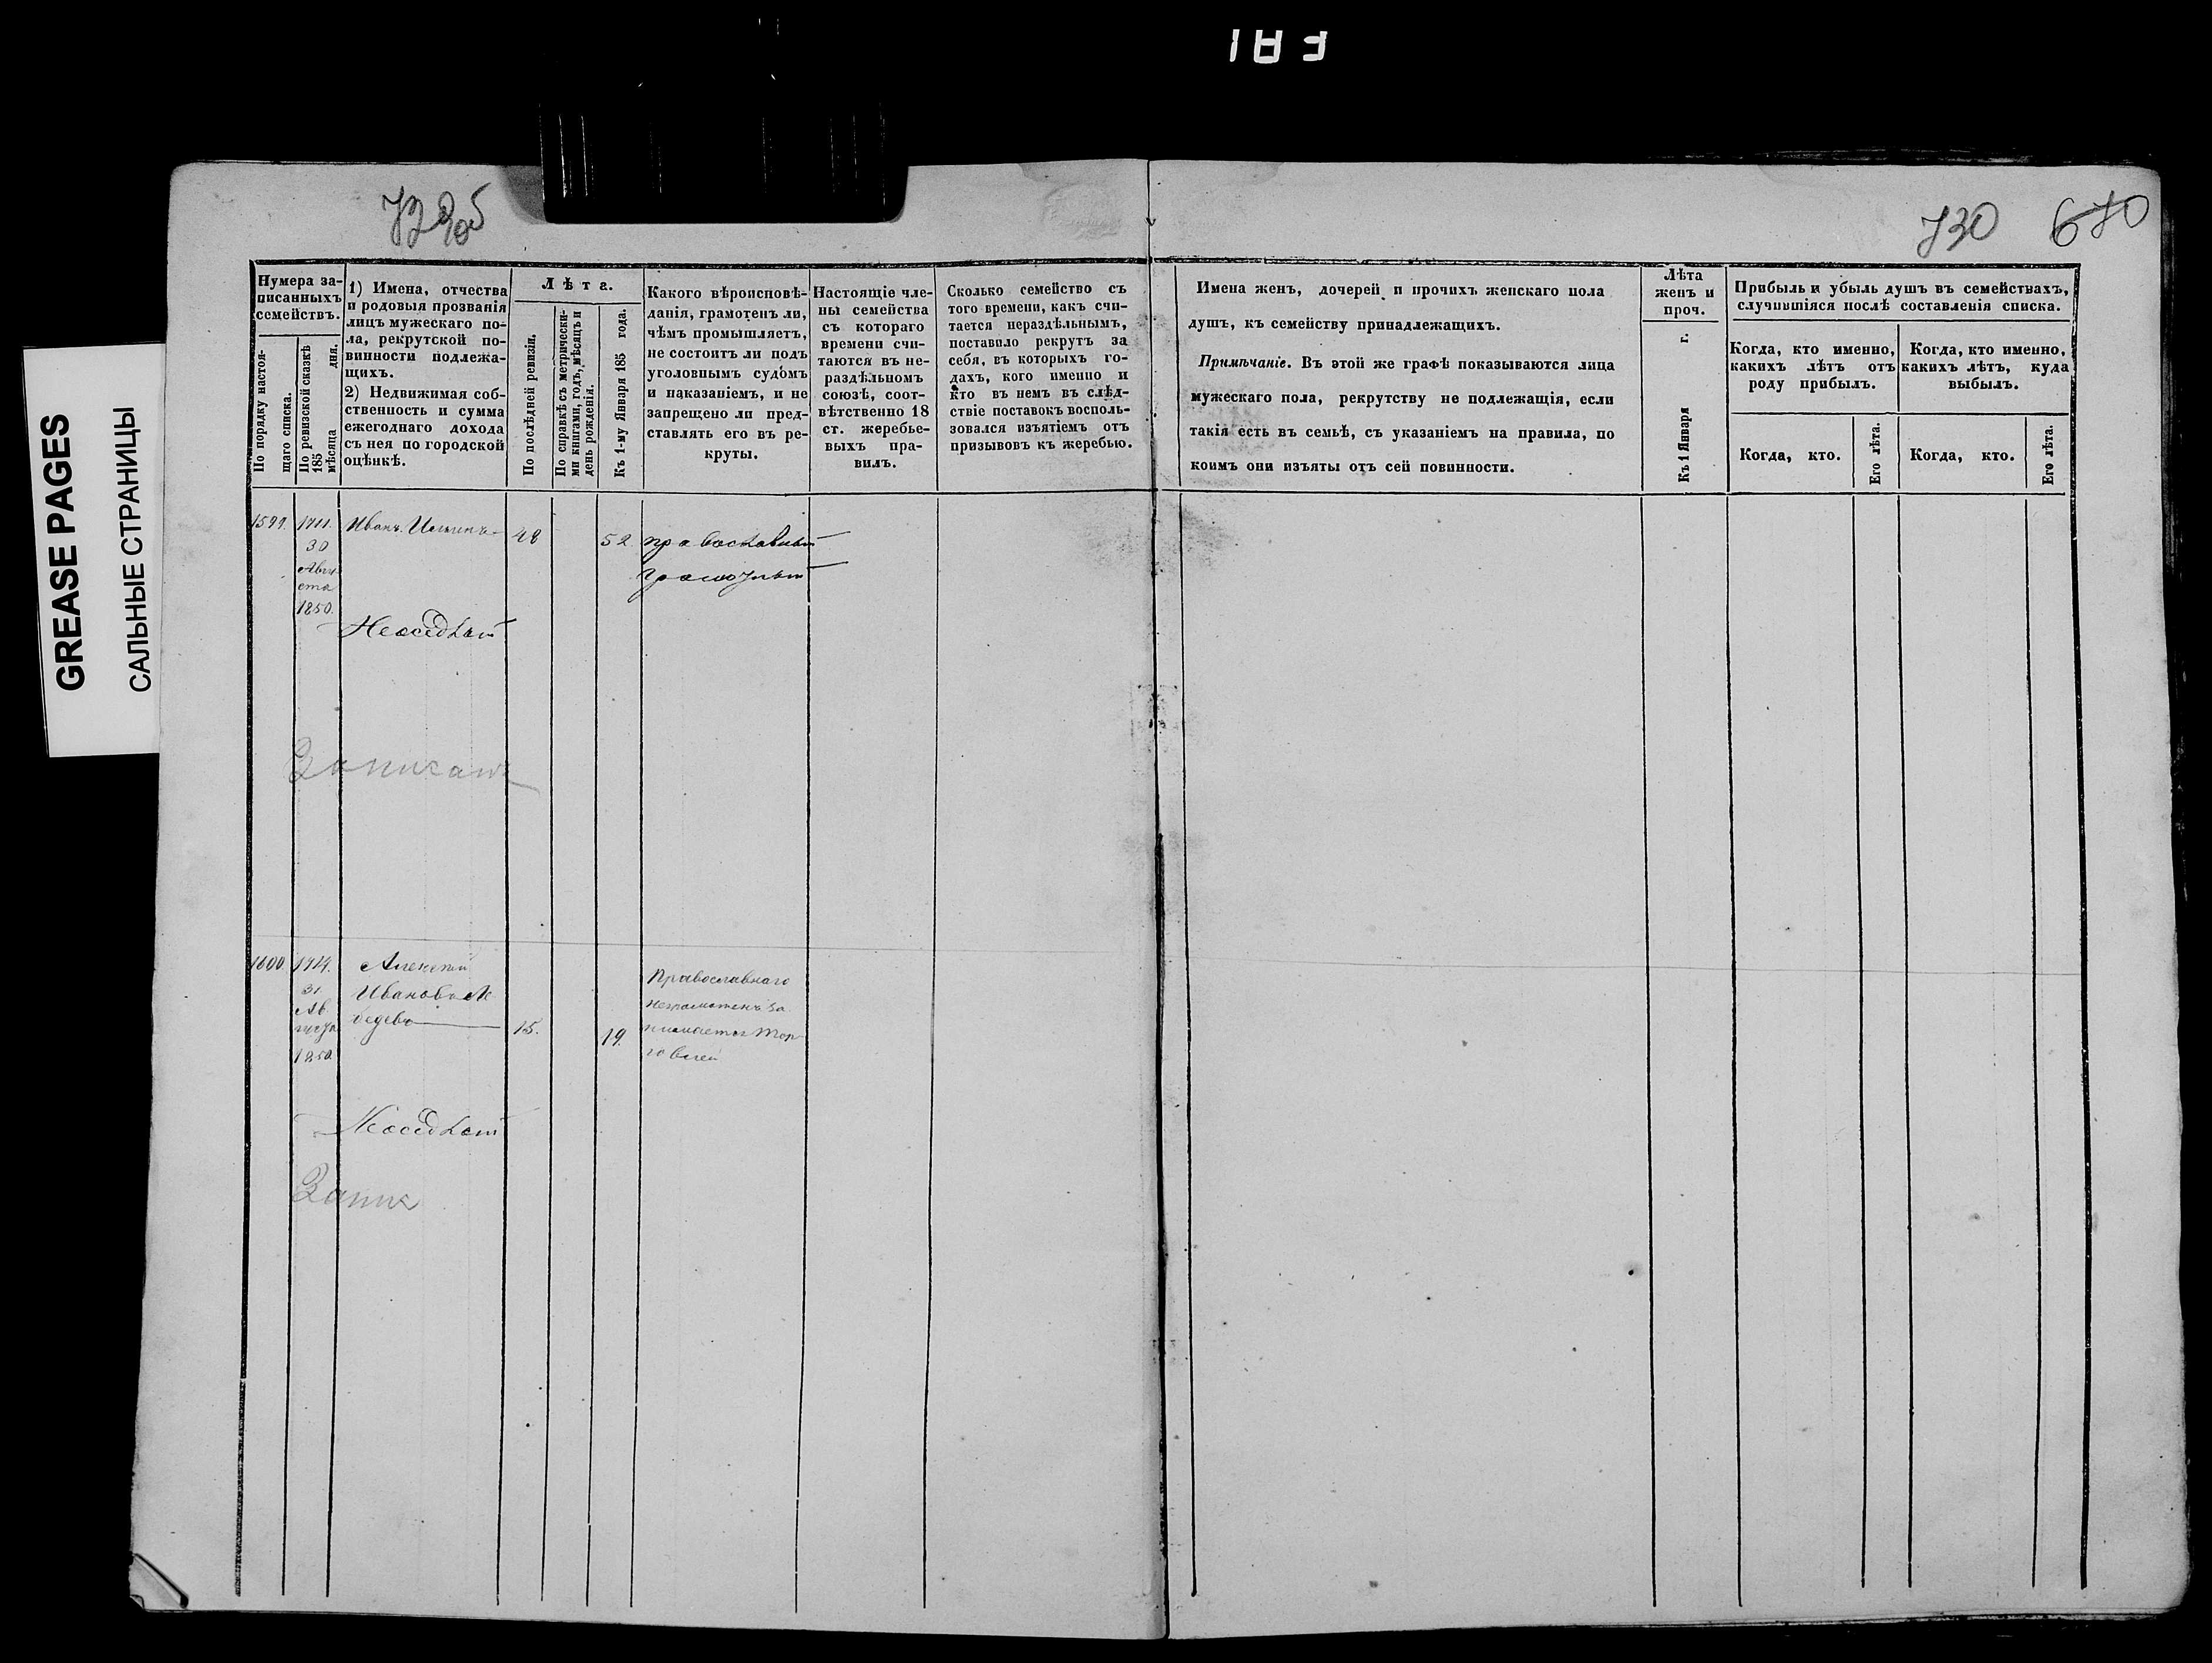 GREASE PAGES
САЛЬНЫЕ СТРАНИЦЫ
729об
730 670
Нумера за-
писанныхъ
семействъ.
По порядку настоя-
щаго списка.
По ревизской сказкѣ
185 дня.
мѣсяца
1) Имена, отчества
и родовыя прозванія
лицъ мужескаго по-
ла, рекрутской по-
винности подлежа-
щихъ.
2) Недвижимая соб-
ственность и сумма
ежегоднаго дохода
съ нея по городской
оцѣнкѣ.
Лѣта.
По послѣдней ревизіи.
По справкѣ съ метрически-
ми книгами, годъ, мѣсяцъ и
день рожденія.
Къ 1-му Января 185 года.
Какого вѣроисповѣ-
данія, грамотенъ ли,
чѣмъ промышляетъ,
не состоитъ ли подъ
уголовнымъ судомъ
и наказаніемъ, и не
запрещено ли пред-
ставлять его въ ре-
круты.
Настоящіе чле-
ны семейства
съ котораго
времени счи-
таются въ не-
раздѣльномъ
союзѣ, соот-
вѣтственно 18
ст. жеребье-
выхъ пра-
вилъ.
Сколько семейство съ
того времени, какъ счи-
тается нераздѣльнымъ,
поставило рекрутъ за
себя, въ которыхъ го-
дахъ, кого именно и
кто въ немъ въ слѣд-
ствіе поставокъ восполь-
зовался изъятіемъ отъ
призывовъ къ жеребью.
Имена женъ, дочерей и прочихъ женскаго пола
душъ, къ семейству принадлежащихъ.
Примѣчаніе. Въ этой же графѣ показываются лица
мужескаго пола, рекрутству не подлежащія, если
такія есть въ семьѣ, съ указаніемъ на правила, по
коимъ они изъяты отъ сей повинности.
Лѣта
женъ и
проч.
Къ 1 Января г.
Прибыль и убыль душъ въ семействахъ,
случившіяся послѣ составленія списка.
Когда, кто именно,
какихъ лѣтъ отъ
роду прибылъ.
Когда, кто именно,
какихъ лѣтъ, куда
выбылъ.
Когда, кто.
Его лѣта.
Когда, кто.
Его лѣта.
1599.
30
Авгу
ста
1850.
Иванъ
48
52.
православный
грамотный
Неоседлый
Записанъ
1600.
31
Ав
густа
1850.
Алексей
Ивановъ Ле
бедевъ
15.
19.
Православнаго
неграмотенъ за
нимается тор
говлей
Неоседлый
Запис